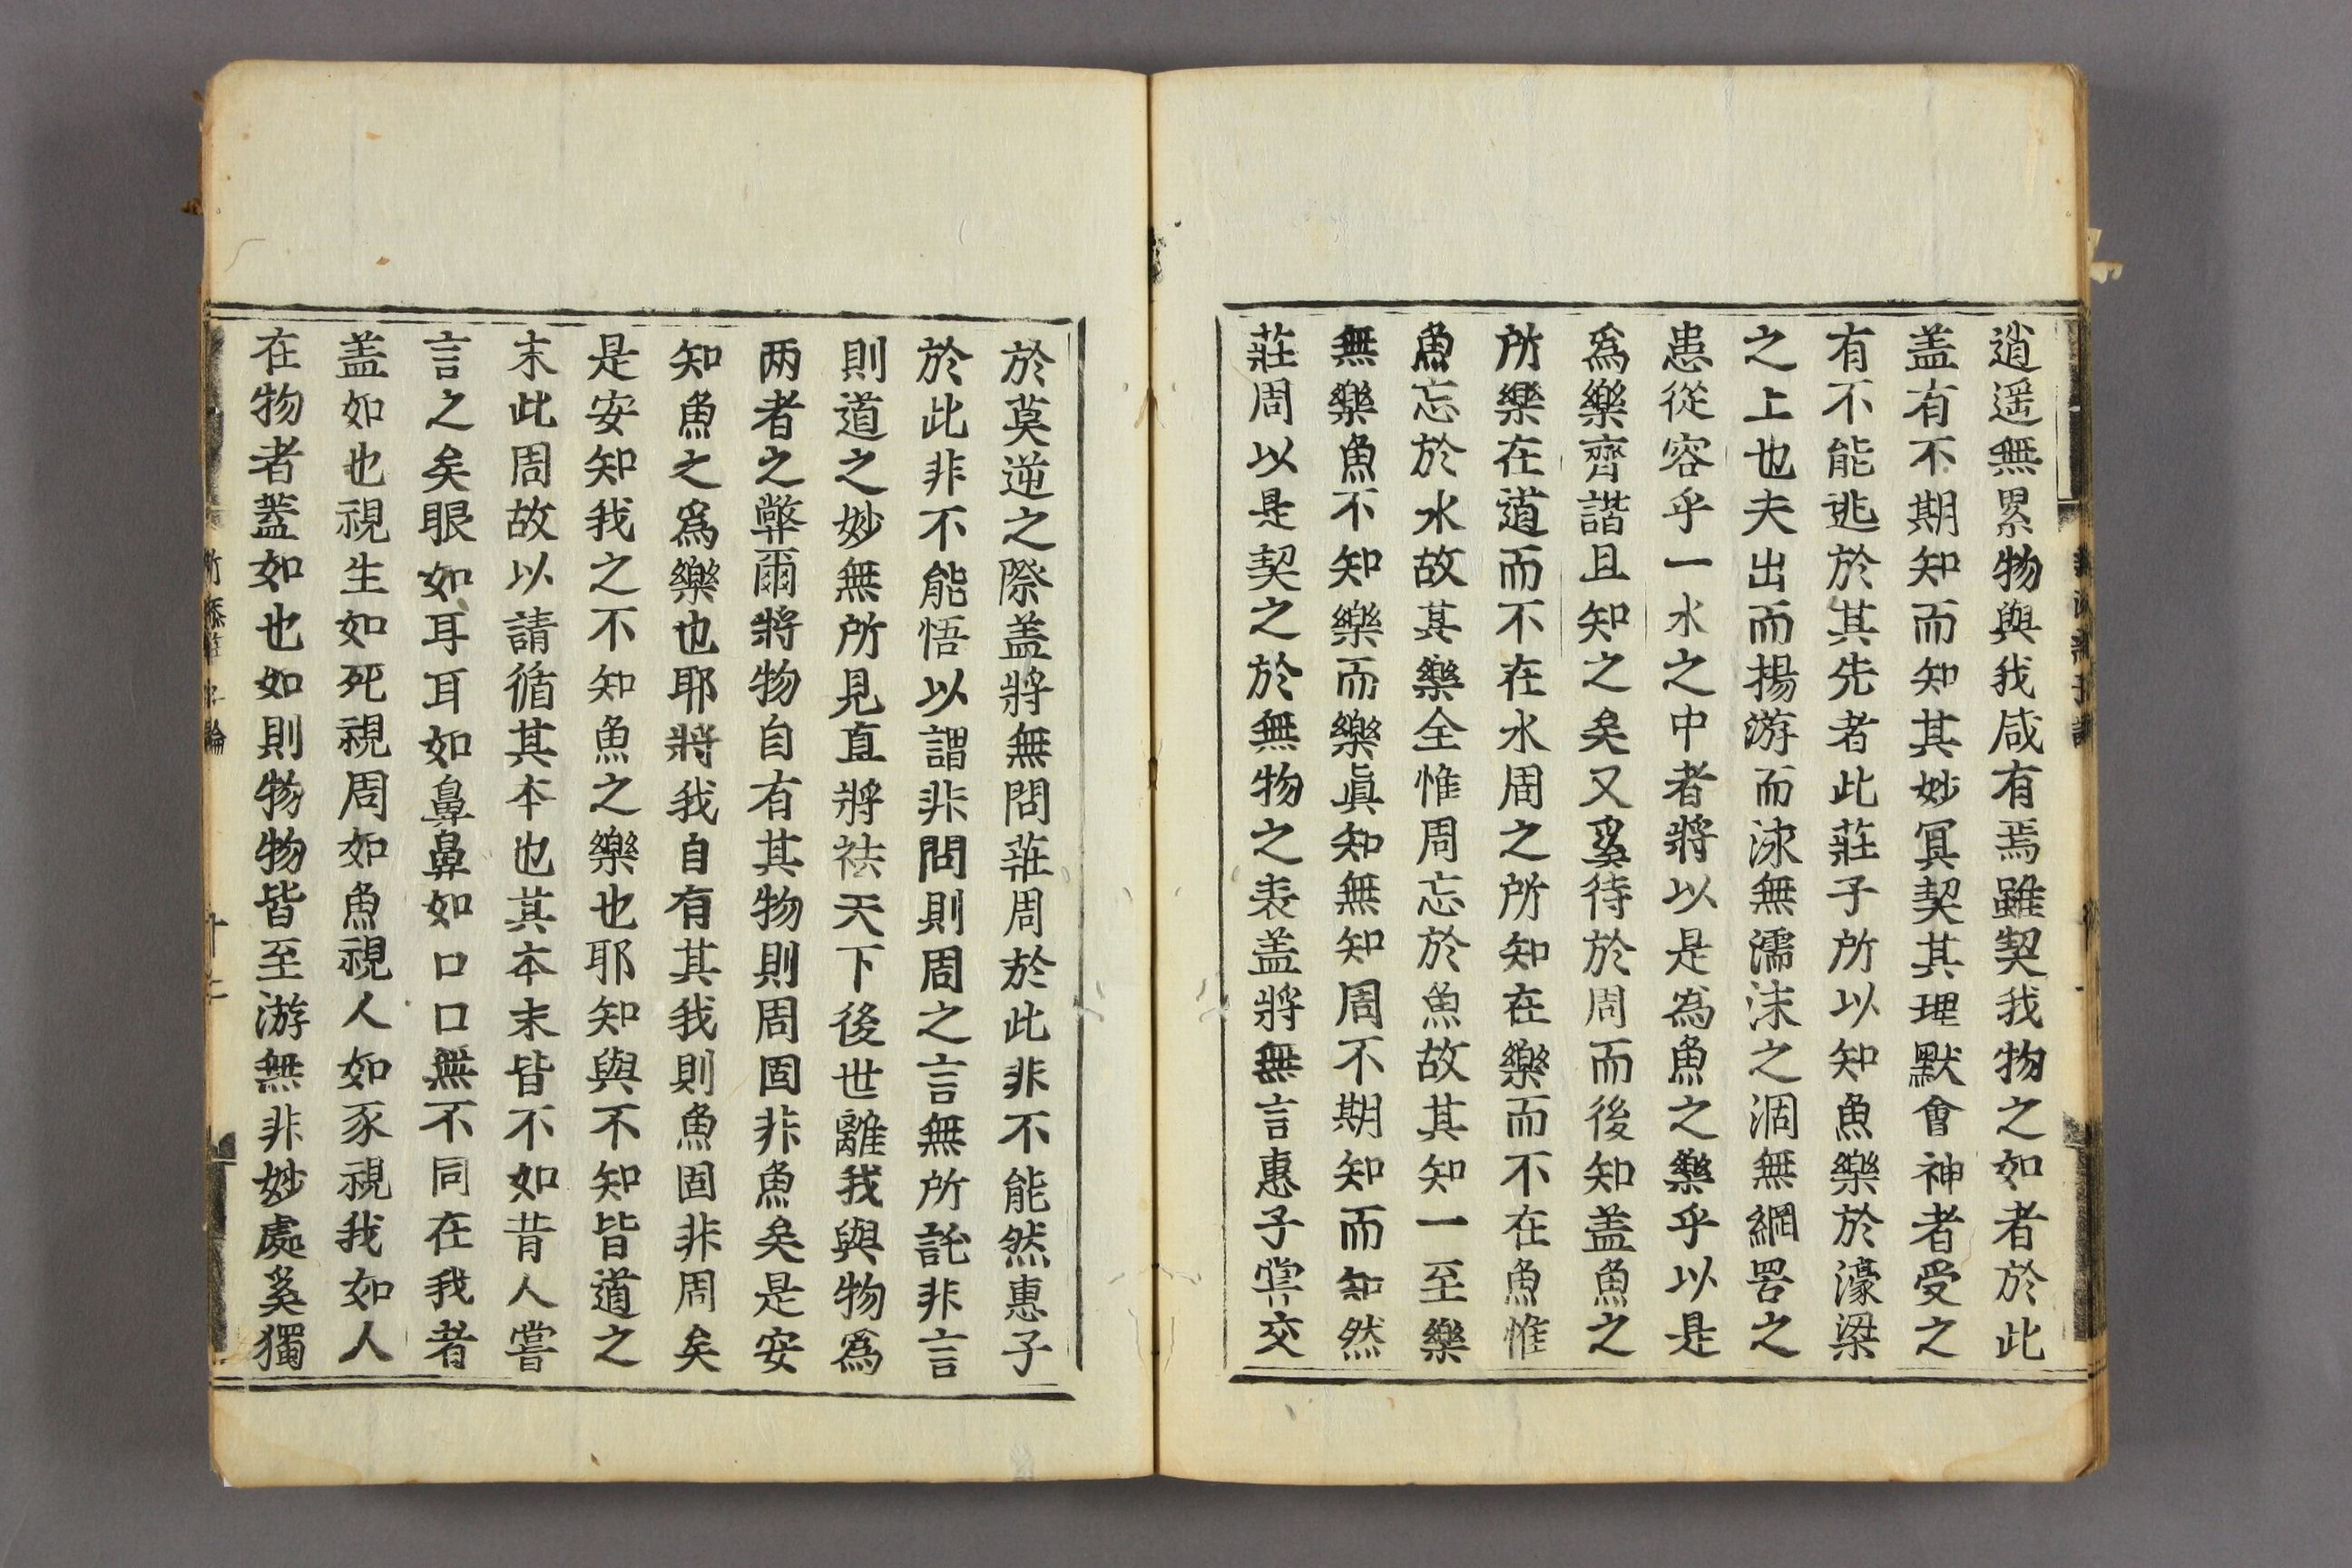 逍遥無累物與我咸有焉雖契我物之如者於此
盖有不期知而知其妙冥契其理默會神者受之
有不能逃於其先者此莊子所以知魚樂於濠梁
之上也夫出而揚游而泳無濡沫之涸無綱罟之
患從容乎一水之中者將以是為魚之樂乎以是
爲樂齊諧且知之矣又奚待於周而後知盖魚之
所樂在道而不在水周之所知在樂而不在魚惟
魚忘於水故其樂全惟周忘於魚故其知一至樂
無樂魚不知樂而樂眞知無知周不期知而知然
莊周以是契之於無物之表盖將無言惠子嘗交
於莫逆之際盖將無問莊周於此非不能然惠子
於此非不能悟以謂非問則周之言無所託非言
則道之妙無所見直將袪天下後世離我與物爲
两者之弊爾將物自有其物則周固非魚矣是安
知魚之爲樂也耶將我自有其我則魚固非周矣
是安知我之不知魚之樂也耶知與不知皆道之
末此周故以請循其本也其本末皆不如昔人嘗
言之矣眼如耳耳如鼻鼻如口口無不同在我者
盖如也視生如死視周如魚視人如豕視我如人
在物者蓋如也如則物物皆至游無非妙處奚獨